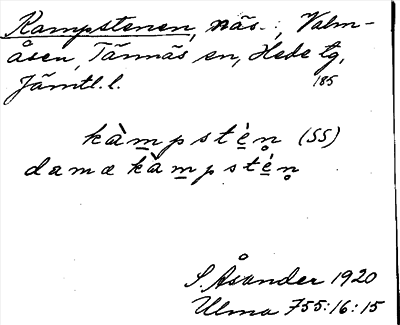 Kampstenen, näs.:, Valm-
åsen, Tännäs sn, Hede tg,
Jämtl. l. 185
kàm̲pstè̲n̥ (SS)
dama kàm̲pstè̲n̥
S. Åsander 1920
Ulma 755:16:15